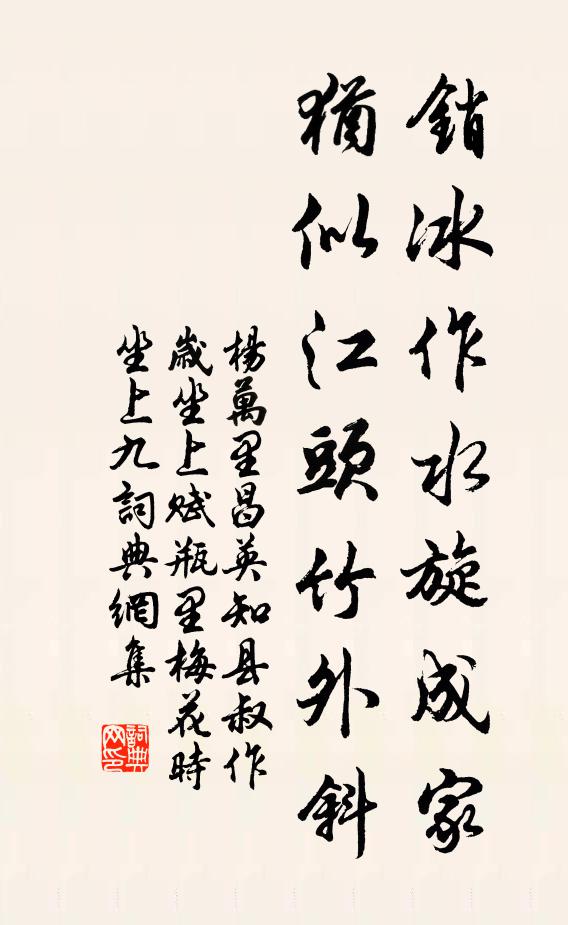 銷冰作水旋成家
猶似江頭竹外斜
楊萬里昌英知县叔作
歲坐上賦瓶里梅花時
坐上九詞典網集
詞典
网印